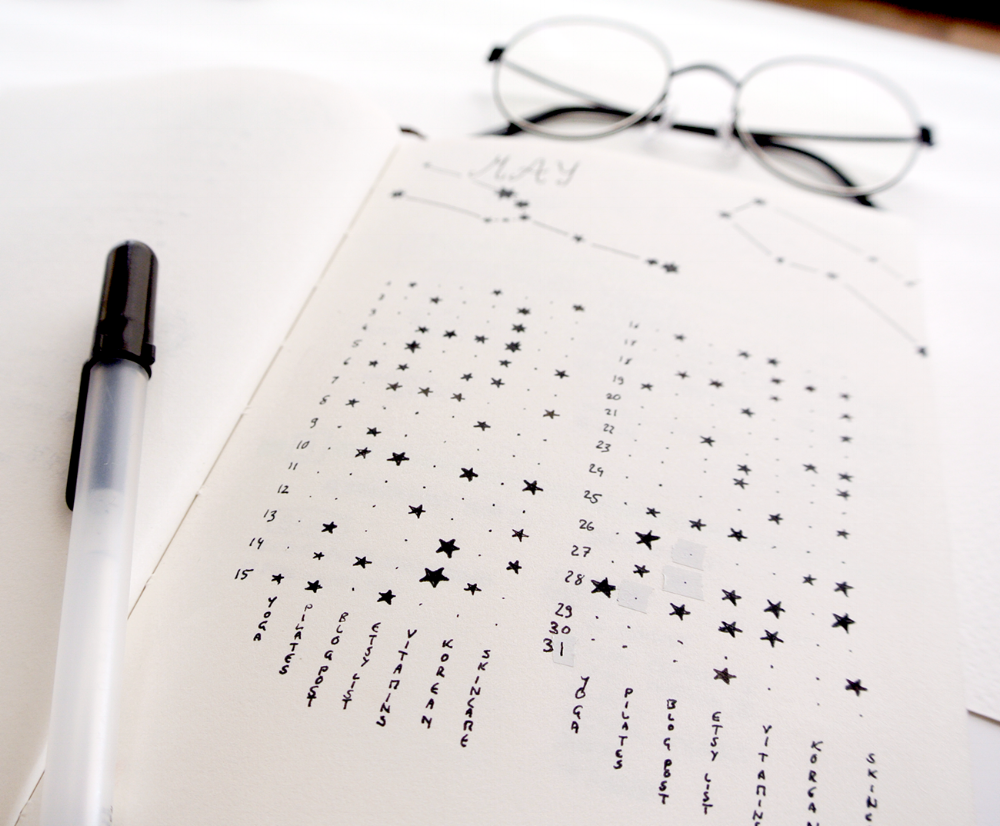 MAY
5
6
7
8
9
10
11
12
13
14
15
YOGA
PILATES
BLOG POST
ETSY LIST
VITAMINS
KOREAN
SKINCARE
16
17
18
19
20
21
22
23
24
25
26
27
28
29
30
31
YOGA
PILATES
BLOG POST
ETSY LIST
VITAMINS
KOREAN
SKINC